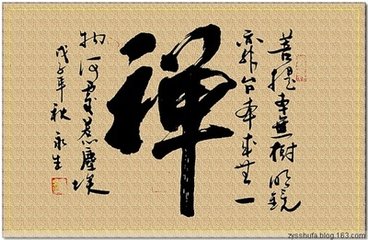 菩提本無樹明鏡
亦非台本來無一
禪
物何處惹塵埃
戊子年秋永生
zysshufa.blog.163.com